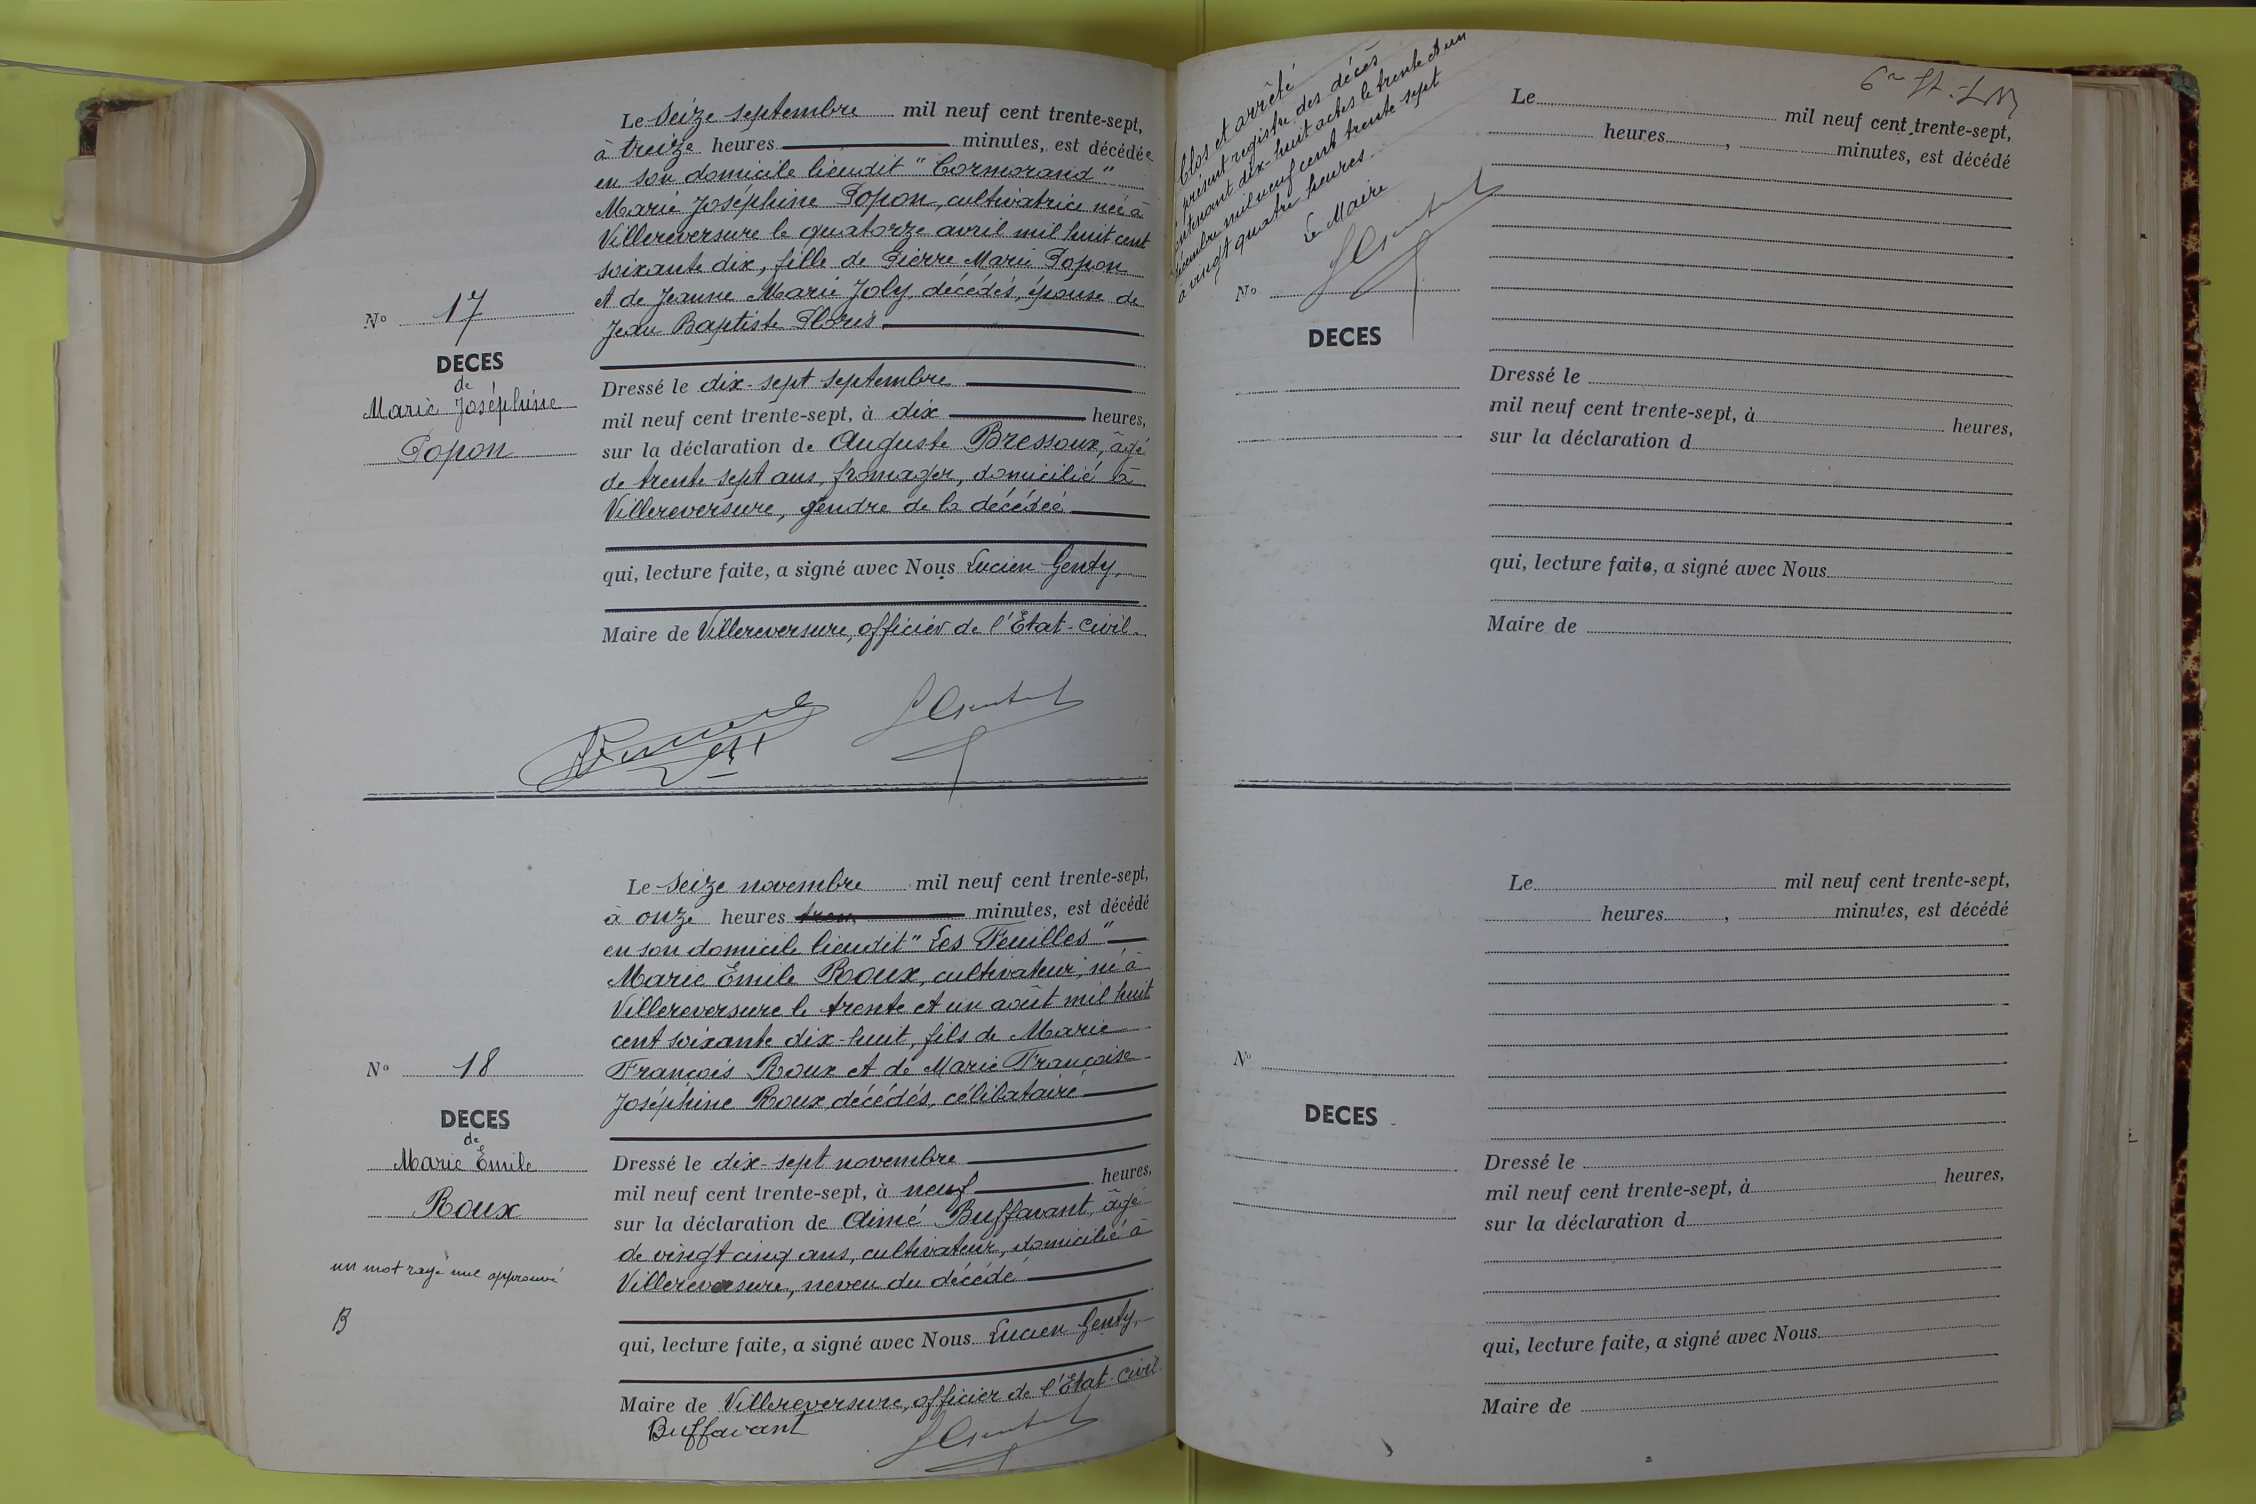 Le Seize septembre mil neuf cent trente-sept,
à treize heures minutes, est décédée
en son domicile lieudit "Cormorand"
Marie Joséphine Popon, cultivatrice née à
Villereversure le quatorze avril mil huit cent
soixante dix, fille de Pierre Marie Popon
et de Jeanne Marie Joly, décédés, épouse de
Jean Baptiste
No 17
DECES
de
Marie Joséphine
Popon
Dressé le dix-sept septembre
mil neuf cent trente-sept, à dix heures,
sur la déclaration de Auguste Bressoux, âgé
de trente sept ans, fromager, domicilié à
Villereversure, gendre de la décédée
qui, lecture faite, a signé avec Nous Lucien Genty,
Maire de Villereversure, officier de l'Etat-Civil.
Le Seize novembre mil neuf cent trente-sept,
à onze heures minutes, est décédé
en son domicile lieudit "Les Feuilles"
Marie Emile Roux, cultivateur, né à
Villereversure le trente et un août mil huit
cent soixante dix-huit, fils de Marie
François Roux et de Marie Françoise
Joséphine Roux, décédés, célibataire
No 18
DECES
de
Marie Emile
Roux
un mot rayé nul approuvé
B
Dressé le dix-sept novembre
mil neuf cent trente-sept, à neuf heures,
sur la déclaration de Aimé Buffavant, âgé
de vingt cinq ans, cultivateur, domicilié à
Villereversure, neveu du décédé
qui, lecture faite, a signé avec Nous Lucien Genty,
Maire de Villereversure, officier de l'Etat-Civil
Buffavant
Clos et arrêté
présent registre des décès
contenant dix-huit actes le trente et un
décembre mil neuf cent trente sept
à vingt quatre heures.
Le Maire
No
DECES
Le mil neuf cent trente-sept,
heures , minutes, est décédé
Dressé le
mil neuf cent trente-sept, à heures,
sur la déclaration d
qui, lecture faite, a signé avec Nous
Maire de
Le mil neuf cent trente-sept,
heures , minutes, est décédé
No
DECES
Dressé le
mil neuf cent trente-sept, à heures,
sur la déclaration d
qui, lecture faite, a signé avec Nous
Maire de